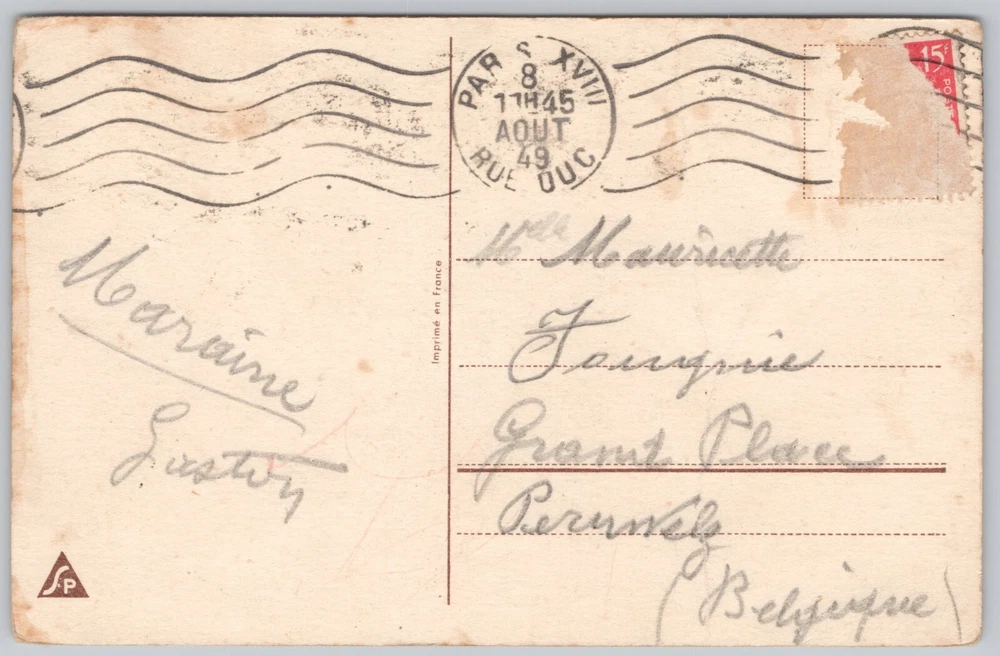 PARIS XVIII
8
11H45
AOUT
49
RUE DUC
15F
POST
Imprimé en France
Maraine
Gaston
Melle Mauricette
Fougnie
Grand Place
Peruwelz
(Belgique)
S.P